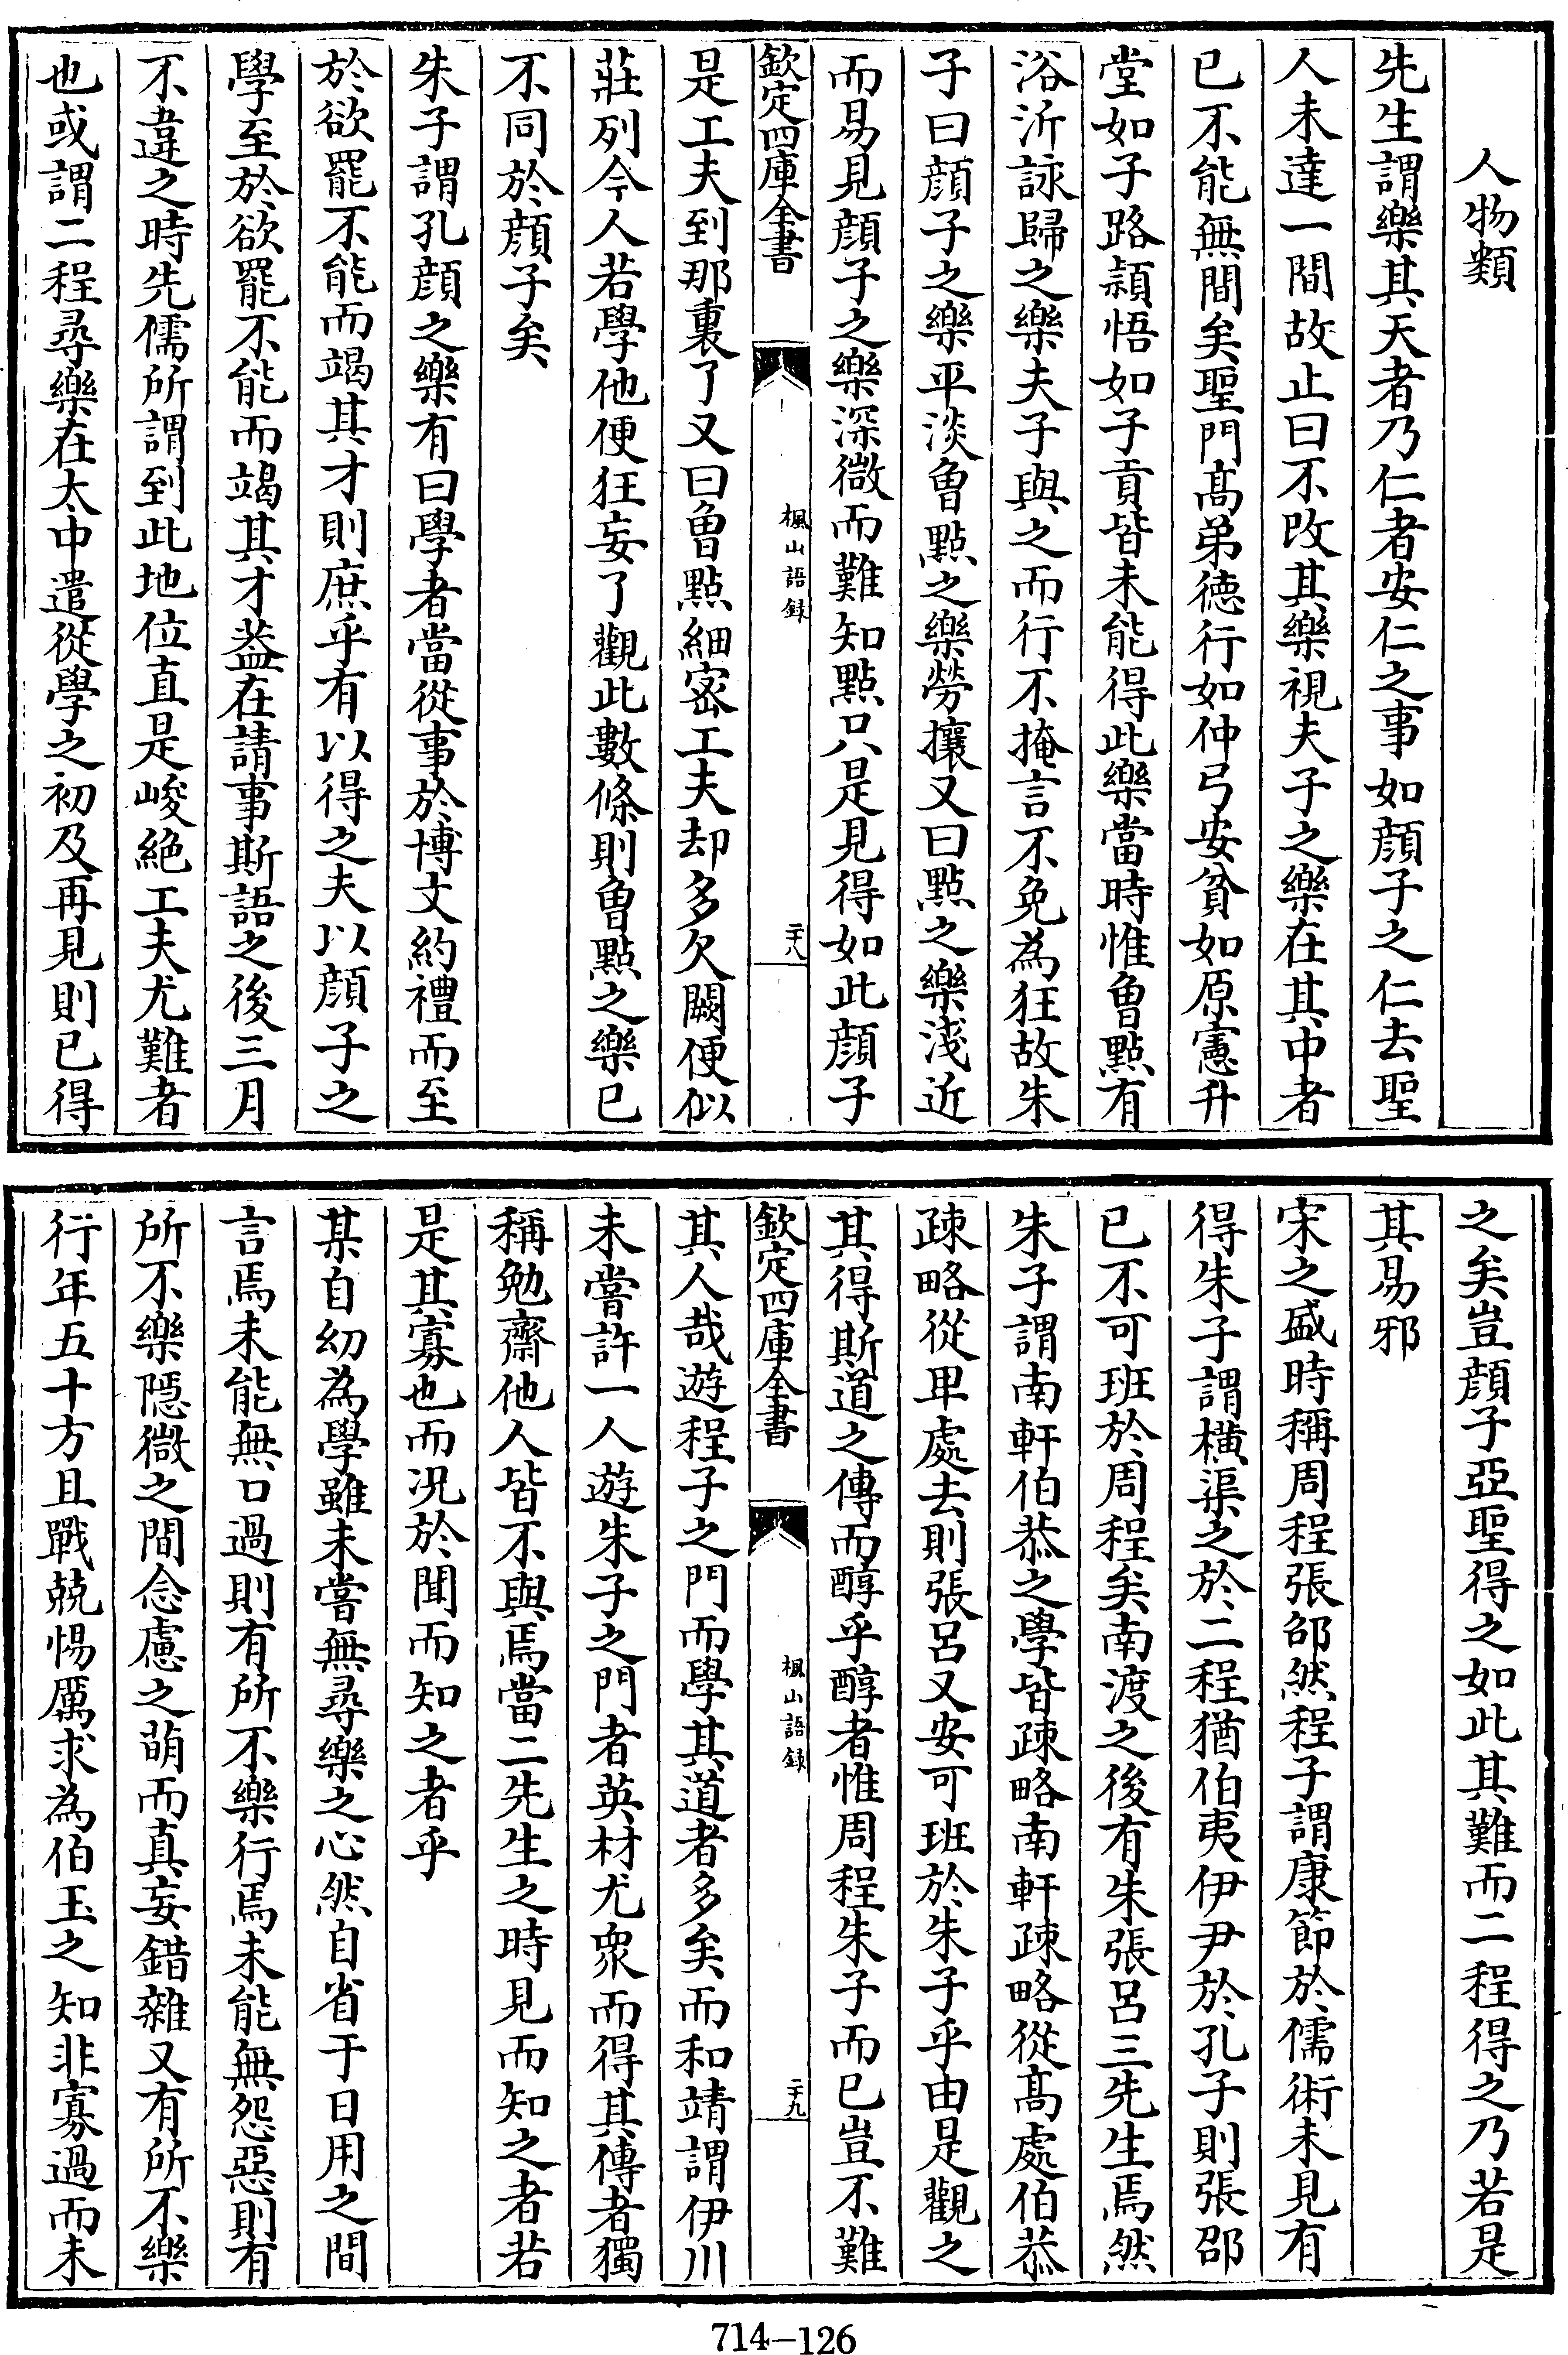 人物類
先生謂樂其天者乃仁者安仁之事如顔子之仁去聖
人未達一間故止曰不改其樂視夫子之樂在其中者
已不能無間矣聖門髙弟徳行如仲弓安貧如原憲升
堂如子路穎悟如子貢皆未能得此樂當時惟曾㸃有
浴沂詠歸之樂夫子與之而行不掩言不免為狂故朱
子曰顔子之樂平淡曾㸃之樂勞攘又曰㸃之樂淺近
而易見顔子之樂深微而難知㸃只是見得如此顔子
欽定四庫全書
楓山語録
二十八
是工夫到那裏了又曰曾㸃細宻工夫却多欠闕便似
莊列今人若學他便狂妄了觀此數條則曾㸃之樂已
不同於顔子矣
朱子謂孔顔之樂有曰學者當從事於博文約禮而至
於欲罷不能而竭其才則庶乎有以得之夫以顔子之
學至於欲罷不能而竭其才葢在請事斯語之後三月
不違之時先儒所謂到此地位直是峻絶工夫尤難者
也或謂二程尋樂在太中遣從學之初及再見則已得
之矣豈顔子亞聖得之如此其難而二程得之乃若是
其易邪
宋之盛時稱周程張邵然程子謂康節於儒術未見有
得朱子謂横渠之於二程猶伯夷伊尹於孔子則張邵
已不可班於周程矣南渡之後有朱張呂三先生焉然
朱子謂南軒伯恭之學皆疎略南軒疎略從髙處伯恭
疎略從卑處去則張呂又安可班於朱子乎由是觀之
其得斯道之傳而醇乎醇者惟周程朱子而已豈不難
欽定四庫全書
楓山語録
二十九
其人哉遊程子之門而學其道者多矣而和靖謂伊川
未嘗許一人遊朱子之門者英材尤衆而得其傳者獨
稱勉齋他人皆不與焉當二先生之時見而知之者若
是其寡也而况於聞而知之者乎
某自幼為學雖未嘗無尋樂之心然自省于日用之間
言焉未能無口過則有所不樂行焉未能無怨惡則有
所不樂隠微之間念慮之萌而真妄錯雜又有所不樂
行年五十方且戰兢惕厲求為伯玉之知非寡過而未
714—126